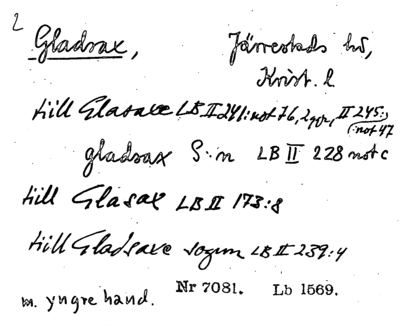 2
Gladsax, Järrestads hd,
Krist. l
till Glasaxe LB II 241: not 76, 2 ggr, II 245:
not 47
gladsax S:n LB II 228 not c
till Glasax LB II 173:8
till Gladsaxe sogen LB II 239:4
m. yngre hand. Nr 7081. Lb 1569.